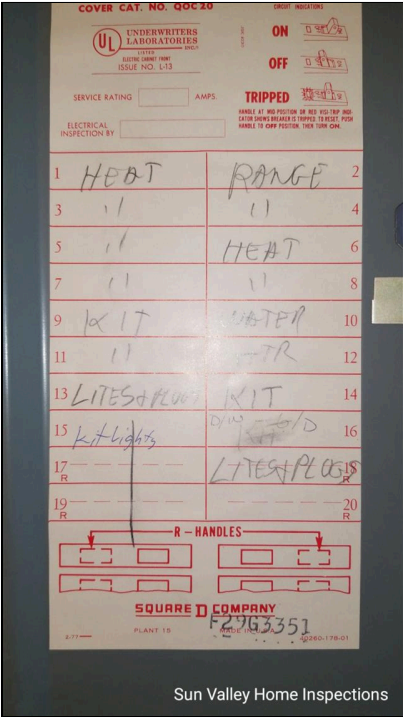 COVER CAT. NO. QOC 20
CIRCUIT INDICATIONS
UL
UNDERWRITERS
LABORATORIES
INC.®
LISTED
ELECTRIC CABINET FRONT
ISSUE NO. L-13
ON
OFF
SERVICE RATING AMPS.
TRIPPED
HANDLE AT MID POSITION OR RED VISI-TRIP INDI-
CATOR SHOWS BREAKER IS TRIPPED. TO RESET, PUSH
HANDLE TO OFF POSITION, THEN TURN ON.
ELECTRICAL
INSPECTION BY
1 HEAT RANGE 2
3 " " 4
5 " HEAT 6
7 " " 8
9 KIT WATER 10
11 " HTR 12
13 LITES+PLUGS KIT 14
15 Kit Lights D/W 16
17 R LITES+PLUGS 18 R
19 R 20 R
R-HANDLES
SQUARE D COMPANY
F29G3351
2-77 PLANT 15 MADE IN U.S.A. 40260-178-01
Sun Valley Home Inspections